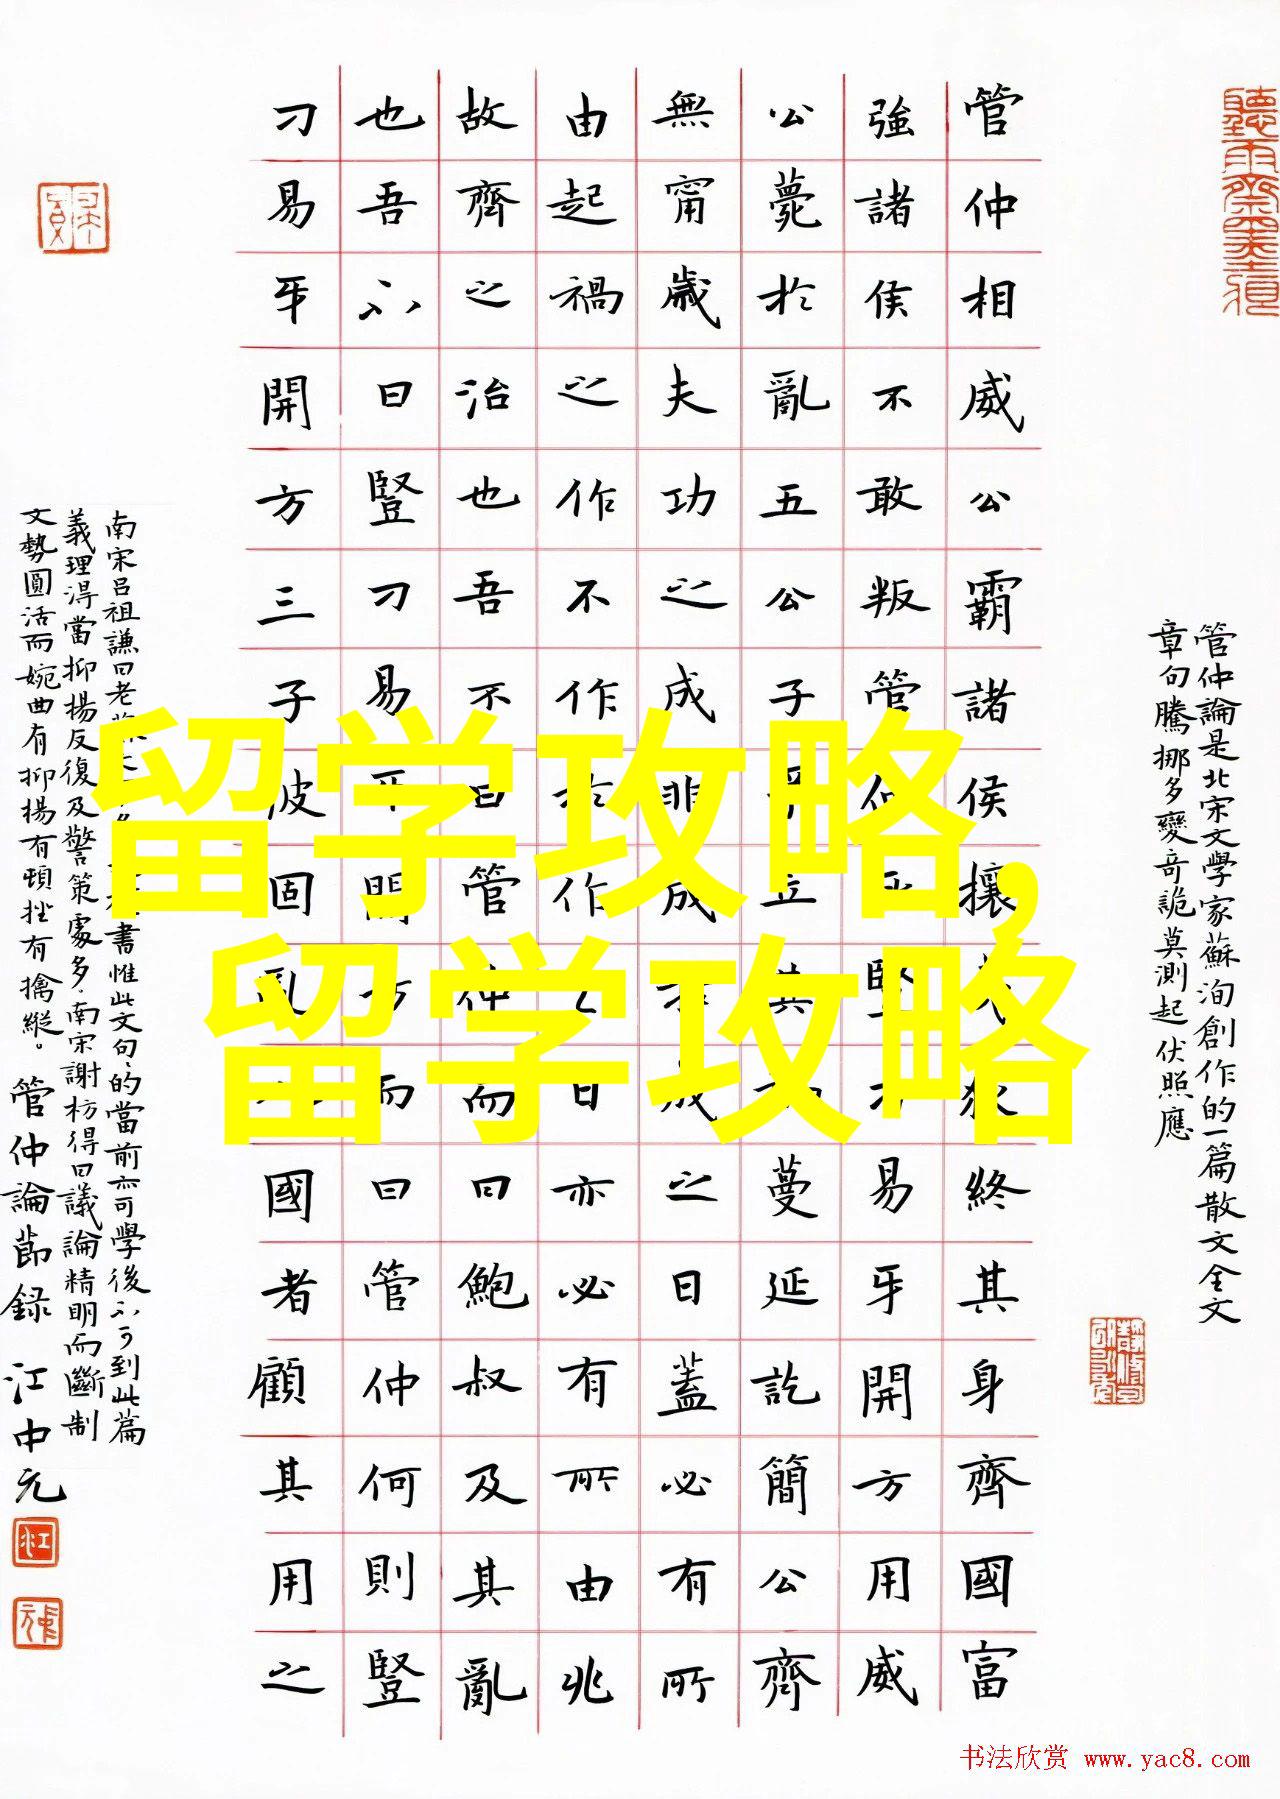 留学攻略,
留学攻略
管仲論是北宋文學家蘇洵創作的一篇散文全文
章句騰挪多變奇詭莫測起伏照應
管仲相威公霸諸侯攘戎狄終其身齊國富
強諸侯不敢叛管仲死豎刁易牙開方用威
公薨於亂五公子爭立其禍蔓延訖簡公齊
無甯歲夫功之成非成於成之日蓋必有所
由起禍之作不作於作之日亦必有所由兆
故齊之治也吾不曰管仲而曰鮑叔及其亂
也吾不曰豎刁易牙開方而曰管仲何則豎
刁易牙開方三子彼固亂人國者顧其用之
南宋呂祖謙曰老蘇文書惟此文句句的當前亦可學後不可到此篇
義理得當抑揚反復及警策處多南宋謝枋得曰議論精明而斷制
文勢圓活而婉曲有抑揚有頓挫有擒縱。管仲論節錄 江中元
江
书法欣赏 www.yac8.com